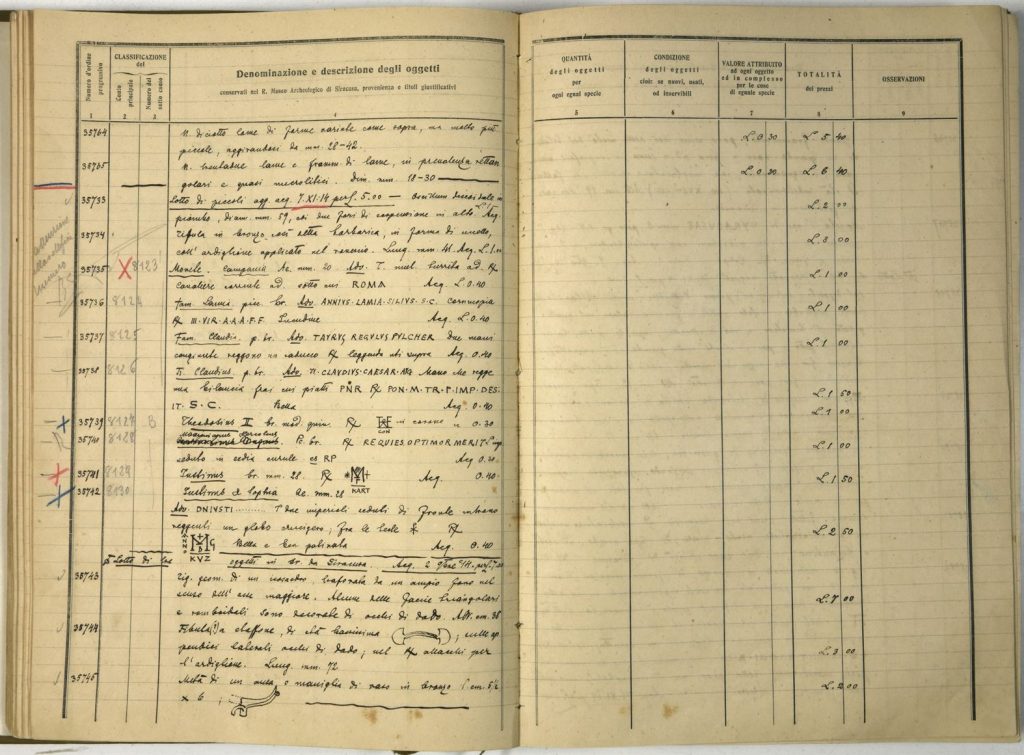 Numero d'ordine progressivo
CLASSIFICAZIONE del
Conto principale
Numero del sotto conto
Denominazione e descrizione degli oggetti
conservati nel R. Museo Archeologico di Siracusa, provenienza e titoli giustificativi
1 2 3 4
35764 N. diciotto lame di forme variate come sopra, ma molto più
piccole, aggirantesi da mm. 28-42.
35765 N. lame e framm. di lame, in prevalenza rettan
golari e quasi microlitici. Dim. mm. 18-30
35733 Lotto di piccoli ogg. acq. 7.XI.14 per £. 5.00 — discoidale in
piombo, diam. mm. 59, con due fori di sospensione in alto Acq.
35734 Fibula in bronzo, così detta barbarica, in forma di uccello,
coll' applicato nel rovescio. Lung. mm. 41. Acq. L. 1.
35735 X 8123 Monete. Campania Ae. mm. 20. Adv. T. mul. turrita ad. R
Cavaliere ad. sotto cui ROMA Acq. L. 0.40
35736 8124 Fam. Lamia picc. br. Adv. ANNIVS·LAMIA·SILIVS·S·C. Cornucopia
R III·VIR·A·A·A·F·F Incudine Acq. L. 0.40
35737 8125 Fam. Claudia. p. br. Adv. TAVRVS REGVLVS PVLCHER Due mani
congiunte reggono un caduceo R leggenda uti supra Acq. 0.40
35738 8126 Ti. Claudius. p. br. Adv. TI·CLAVDIVS·CAESAR·AVG Mano che regge
una bilancia frai cui piatti PNR R PON·M·TR·P·IMP·DES·
IT·S·C. Bella Acq. 0.40
35739 8127 B Theodosius II br. mod. quin. R in corona 0.30
CON
35740 8128 P. br. R REQVIES OPTIMOR MERIT
seduto in sedia curule es RP Acq. 0.30
35741 8129 Iustinus br. mm. 28 R Acq. 0.40
35742 8130 Iustinus et Sophia Ae. mm. 28 KART
Adv. DNIVSTI......... I due imperiali seduti di fronte
reggenti un globo crucigero; fra le teste R
ANNO M G
KVZ Bella e ben patinata Acq. 0.40
Lotto di tre oggetti in br. da Siracusa.
35743 Fig. geom. di un icosaedro, traforata da un ampio foro nel
senso dell' asse maggiore. Alcune delle faccie triangolari
e romboidali sono decorate di occhi di dado. Alt. cm. 38
35744 Fibula (?) a staffone, di età ; sulle ap
pendici laterali occhi di dado; nel R attacchi per
l'ardiglione. Lung. mm. 72
35745 Metà di un' ansa, o maniglia di vaso in bronzo l. cm. 8½
x 6
QUANTITÀ
degli oggetti
per
ogni egual specie
5
CONDIZIONE
degli oggetti
cioè: se nuovi, usati,
od inservibili
6
VALORE ATTRIBUITO
ad ogni oggetto
ed in complesso
per le cose
di eguale specie
7
TOTALITÀ
dei prezzi
8
OSSERVAZIONI
9
L. 0 30 L. 5 40
L. 0 20 L. 6 40
L. 2 00
L. 3 00
L. 1 00
L. 1 00
L. 1 00
L. 1 50
L. 1 00
L. 1 00
L. 1 50
L. 2 50
L. 7 00
L. 3 00
L. 2 00